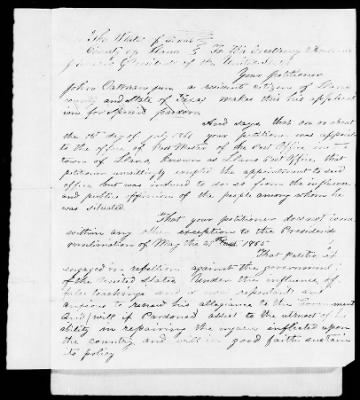 The State of Texas
County of Llano To His Excellency Andrew
Johnson President of the United States
Your petitioner
John Oatman junr a resident citizen of Llano
county and State of Texas makes this his applicat
ion for Special pardon
And says that on or about
the day of July 1861 your petitioner was appoint
to the office of Post Master of the Post Office in
town of Llano, known as Llano Post Office, that
petitioner unwillingly accepted the appointment to said
office but was induced to do so from the influence
and public opinion of the people among whom he
was situated
That your petitioner does not come
within any other exception to the Presidents
proclamation of May the 29th 1865
That petitioner
engaged in rebellion against the government
of the United States under the influence of
false teachings and is now repentant and
anxious to renew his allegiance to the Government
And will if Pardoned assist to the utmost of his
ability in repairing the injuries inflicted upon
the country and will in good faith sustain
its policy